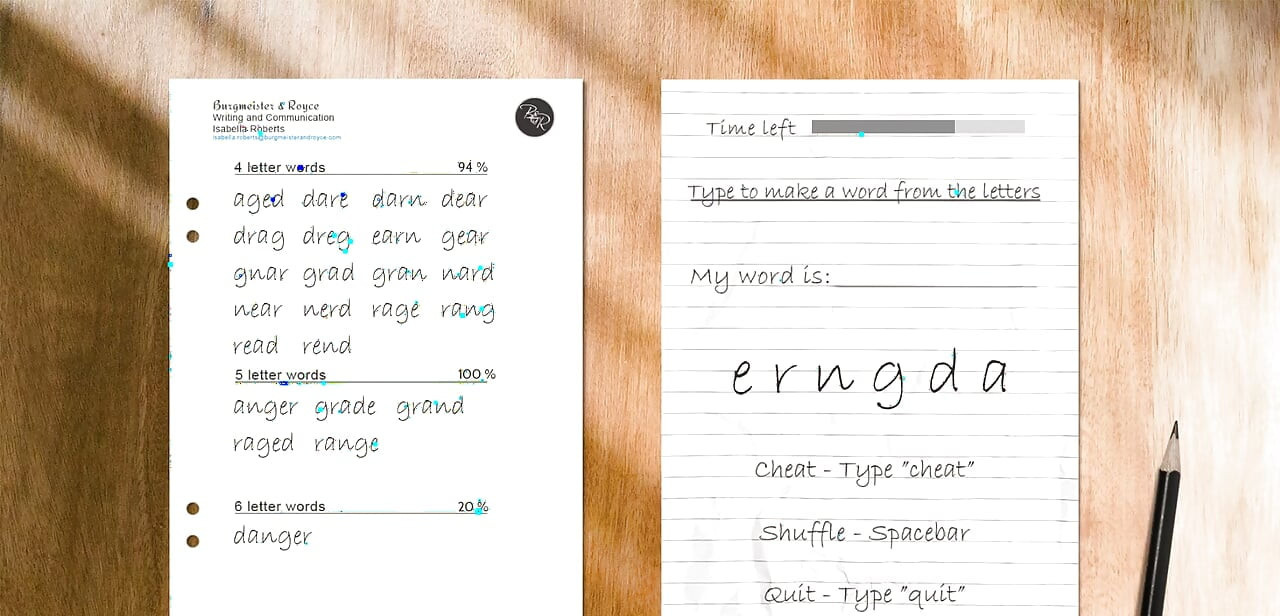 Burgmeister & Royce
Writing and Communication
Isabella Roberts
isabella.roberts@burgmeisterandroyce.com
B&R
4 letter words 94 %
aged dare darn dear
drag dreg earn gear
gnar grad gran nard
near nerd rage rang
read rend
5 letter words 100 %
anger grade grand
raged range
6 letter words 20 %
danger
Time left
Type to make a word from the letters
My word is:
e r n g d a
Cheat - Type "cheat"
Shuffle - Spacebar
Quit - Type "quit"